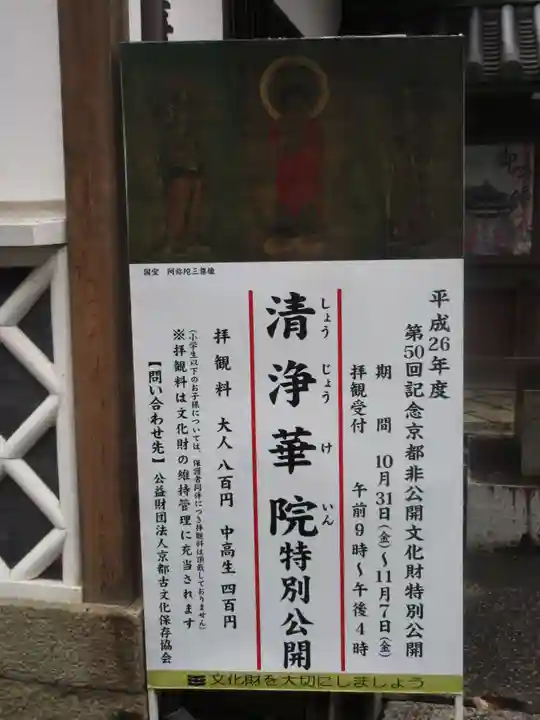 国宝　阿弥陀三尊像
平成26年度
第50回記念京都非公開文化財特別公開
期　間　10月31日(金)～11月7日(金)
拝観受付　午前9時～午後4時
清浄華院特別公開
しょう　じょう　け　いん
拝観料　大人　八百円　中高生　四百円
(小学生以下のお子様については、保護者同伴につき拝観料は頂戴しておりません)
※拝観料は文化財の維持管理に充当されます
【問い合わせ先】　公益財団法人京都古文化保存協会
文化財を大切にしましょう